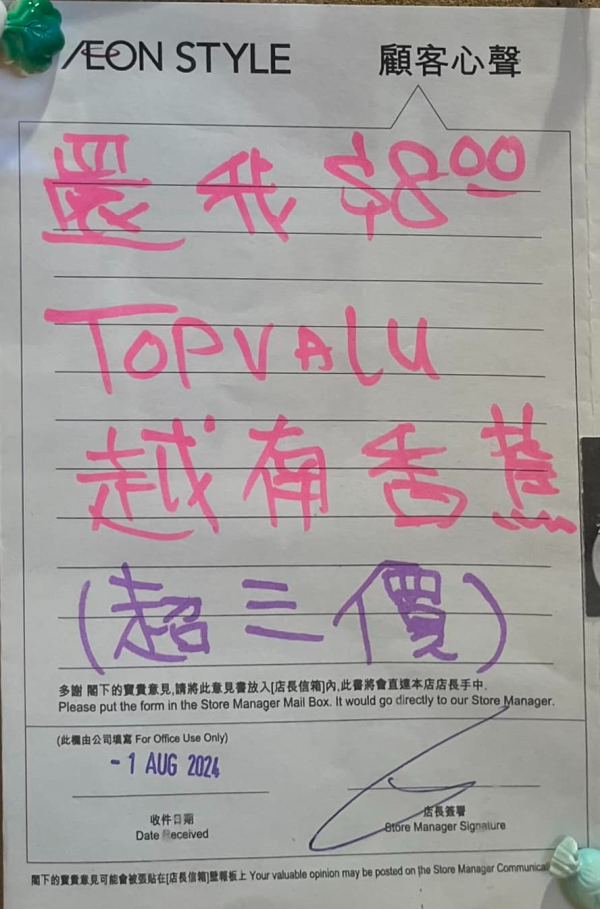 ÆON STYLE 顧客心聲
還我 $8.00
TOPVALU
越南香蕉
(超三價)
多謝 閣下的寶貴意見,請將此意見書放入[店長信箱]內,此書將會直達本店店長手中.
Please put the form in the Store Manager Mail Box. It would go directly to our Store Manager.
(此欄由公司填寫 For Office Use Only)
- 1 AUG 2024
收件日期 店長簽署
Date Received Store Manager Signature
閣下的寶貴意見可能會被張貼在[店長信箱]壁報板上 Your valuable opinion may be posted on the Store Manager